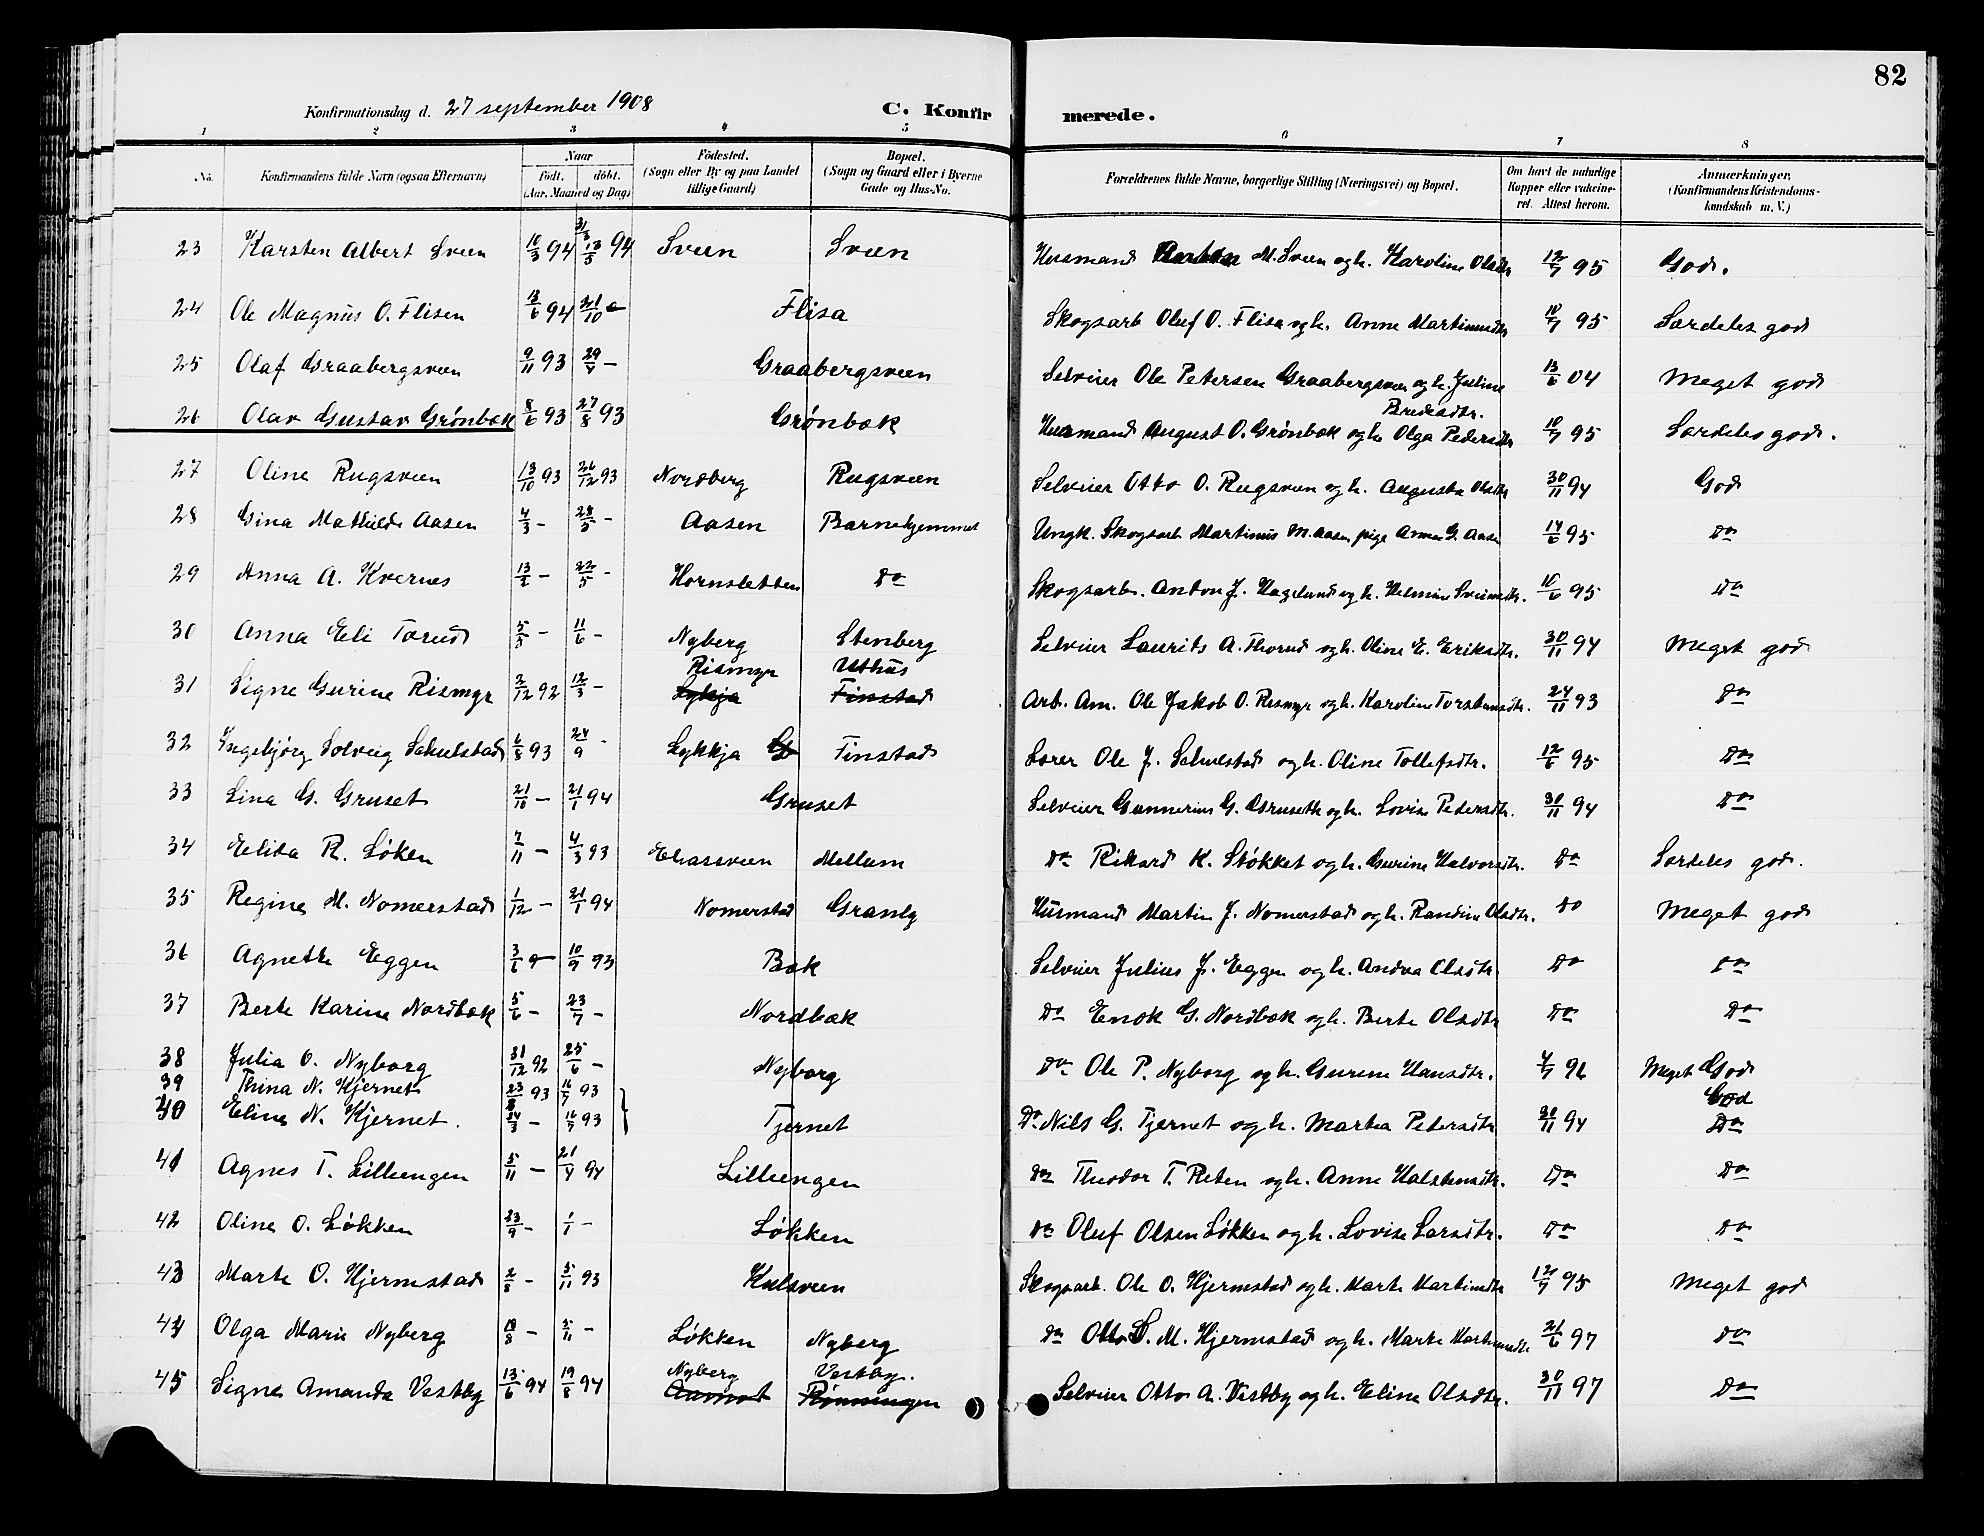 82
Konfirmationsdag d. 27 september 1908 C. Konfirmerede.
1 2 3 4 5 6 7 8
No. Konfirmandens fulde Navn (ogsaa Efternavn) Naar födt. döbt. (Aar, Maaned og Dag) Födested. (Sogn eller By og paa Landet tillige Gaard) Bopæl. (Sogn og Gaard eller i Byerne Gade og Hus-No. Forældrenes fulde Navne, borgerlige Stilling (Næringsvei) og Bopæl. Om havt de naturlige Kopper eller vaccineret. Attest herom. Anmærkninger. (Konfirmandens Kristendomskundskab m. V.)
23 Karsten Albert Sveen 10/3 94 31/3 13/5 94 Sveen Sveen Husmand M. Sveen og h. Karoline Olsdtr 12/7 95 God.
24 Ole Magnus O. Flisen 18/6 94 21/10 Flisa Skogsarb Oluf O. Flisa og h. Anne Martinusdtr 10/7 95 Særdeles god
25 Olaf Graabergsveen 9/11 93 29/7 – Graabergsveen Selveier Ole Petersen Graabergsveen og h. Juline Bredesdtr. 13/6 04 Meget god
26 Olav Gustav Grønbæk 8/6 93 27/8 93 Grønbæk Husmand August O. Grønbæk og h Olga Pedersdtr 10/7 95 Særdeles god.
27 Oline Rugsveen 13/10 93 26/12 93 Nordberg Rugsveen Selveier Otto O. Rugsveen og h. Augusta Olsdtr 30/11 94 God
28 Gina Mathilde Aasen 4/3 – 28/5 – Aasen Barnehjemmet Ungk. Skogsarb Martinus M. Aasen, pige Anne G. Aasen 14/6 95 Do
29 Anna A. Kvernes 13/2 – 22/5 – Hornsletten Do Skogsarb. Anton J. Hagelund og h. Helmine Svendsdtr. 10/6 95 Do
30 Anna Eli Torud 5/5 – 11/6 – Nyberg Stenberg Selveier Laurits A. Thorud og h. Oline E. Eriksdtr. 30/11 94 Meget god
31 Signe Gurine Rismyr 2/12 92 12/3 – Rismyr Lykkja Uthus Finstad Arb. Am. Ole Jakob O. Rismyr og h. Karoline Torstensdtr. 24/11 93 Do
32 Ingebjørg Solveig Schulstad 6/8 93 24/9 – Lykkja Finstad Lærer Ole J. Schulstad og h. Oline Tollefsdtr. 12/6 95 Do
33 Lina G. Gruset 21/10 – 21/1 94 Gruset Selveier Gunnerius G. Gruseth og h. Lovise Pedersdtr. 30/11 94 Do
34 Elisa R. Løken 7/11 – 4/3 93 Eliassveen Mellum Do Rikard K. Støkket og h. Gurine Halvorsdtr. Do Særdeles god.
35 Regine M. Nomerstad 1/12 – 21/1 94 Nomerstad Granly Husmand Martin J. Nomerstad og h. Randine Olsdtr. Do Meget god
36 Agnethe Eggen 3/6 – 10/9 93 Bæk Selveier Julius J. Eggen og h. Andrea Olsdtr. Do Do
37 Berte Karine Nordbæk 5/6 – 23/7 – Nordbæk Do Enok G. Nordbæk og h. Berte Olsdtr Do Do
38 Julia O. Nyborg 31/12 92 25/6 – Nyborg Do Ole P. Nyborg og h. Gurine Hansdtr. 4/7 96 Meget God
39 Thina N. Kjernet 23/8 93 16/7 93 God
40 Eline N. Kjernet. 24/3 – 16/7 93 Tjernet Do Nils G. Tjernet og h. Martea Pedersdtr 30/11 94 Do
41 Agnes T. Lilleengen 5/11 – 21/4 94 Lilleengen Do Theodor T. Reten og h. Anne Halstensdtr. Do Do
42 Oline O. Løkken 23/9 – 1/1 – Løkken Do Oluf Olsen Løkken og h. Lovise Larsdtr. Do Do
43 Marte O. Hjermstad 2/8 – 5/11 93 Kulsveen Skogsarb. Ole O. Hjermstad og h. Marte Martinsdtr 12/7 95 Meget god
44 Olga Marie Nyberg 18/8 – 5/11 – Løkken Nyberg Do Otto M. Hjermstad og h. Marte Martinusdtr. 21/6 97 Do
45 Signe Amanda Vestby 13/6 94 19/8 94 Nyberg Aamot Vestby. Rønningen Selveier Otto A. Vestby og h. Eline Olsdtr. 30/11 97 Do